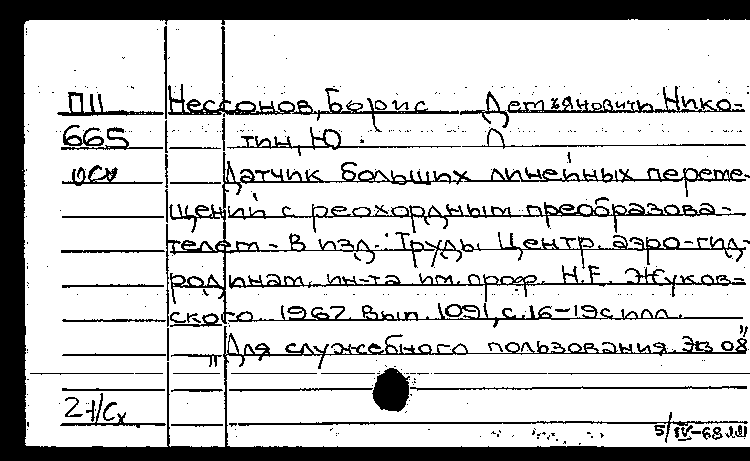 ПII Нессонов, Борис Демьянович, Нико-
665 тин, Ю.
Датчик больших линейных переме-
щений с реохордным преобразова-
телем. - В изд.: Труды Центр. аэро-гид-
родинам. ин-та им. проф. Н.Е. Жуков-
ского. 1967. Вып. 1091, с. 16-19 с илл.
„Для служебного пользования. Экз 08"
2+/Сх.
5/IV-68